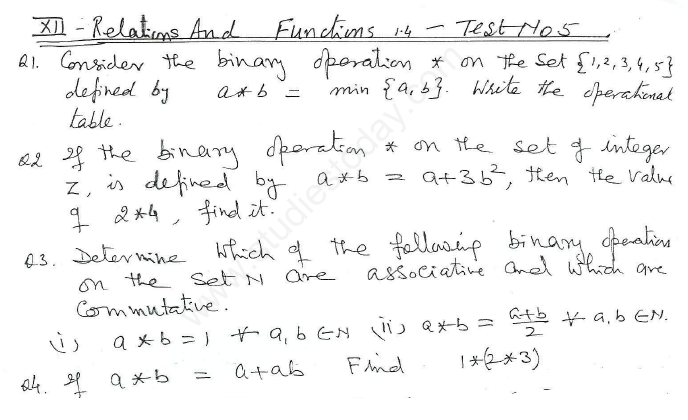 XII - Relations And Functions 1.4 - Test No 5
Q1. Consider the binary operation * on the set {1,2,3,4,5}
defined by a*b = min {a,b}. Write the operational
table.
Q2 If the binary operation * on the set of integer
Z, is defined by a*b = a+3b², then the value
of 2*4, find it.
Q3. Determine which of the following binary operation
on the set N are associative and which are
Commutative.
(i) a*b=1 ∀ a,b ∈N (ii) a*b = a+b/2 ∀ a,b ∈N.
Q4. If a*b = a+ab Find 1*(2*3)
www.studiestoday.com